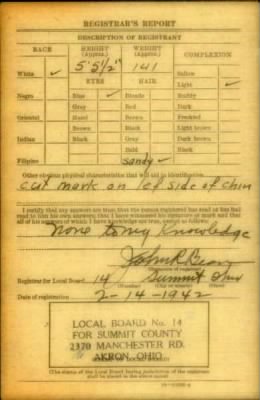 REGISTRAR'S REPORT
DESCRIPTION OF REGISTRANT
RACE HEIGHT (Approx.) WEIGHT (Approx.) COMPLEXION
5' 5 1/2" 141
White ✓ EYES HAIR Sallow
Light ✓
Negro Blue ✓ Blonde Ruddy
Gray Red Dark
Oriental Hazel Brown Freckled
Brown Black Light brown
Indian Black Gray Dark brown
Bald Black
Filipino sandy ✓
Other obvious physical characteristics that will aid in identification
cut mark on lef side of chin
I certify that my answers are true; that the person registered has read or has had
read to him his own answers; that I have witnessed his signature or mark and that
all of his answers of which I have knowledge are true, except as follows:
None to my knowledge
John R
(Signature of registrar)
Registrar for Local Board 14 Summit Ohio
(Number) (City or county) (State)
Date of registration 2-14-1942
LOCAL BOARD No. 14
FOR SUMMIT COUNTY
2370 MANCHESTER RD.
AKRON, OHIO
(STAMP OF LOCAL BOARD)
(The stamp of the Local Board having jurisdiction of the registrant
shall be placed in the above space)